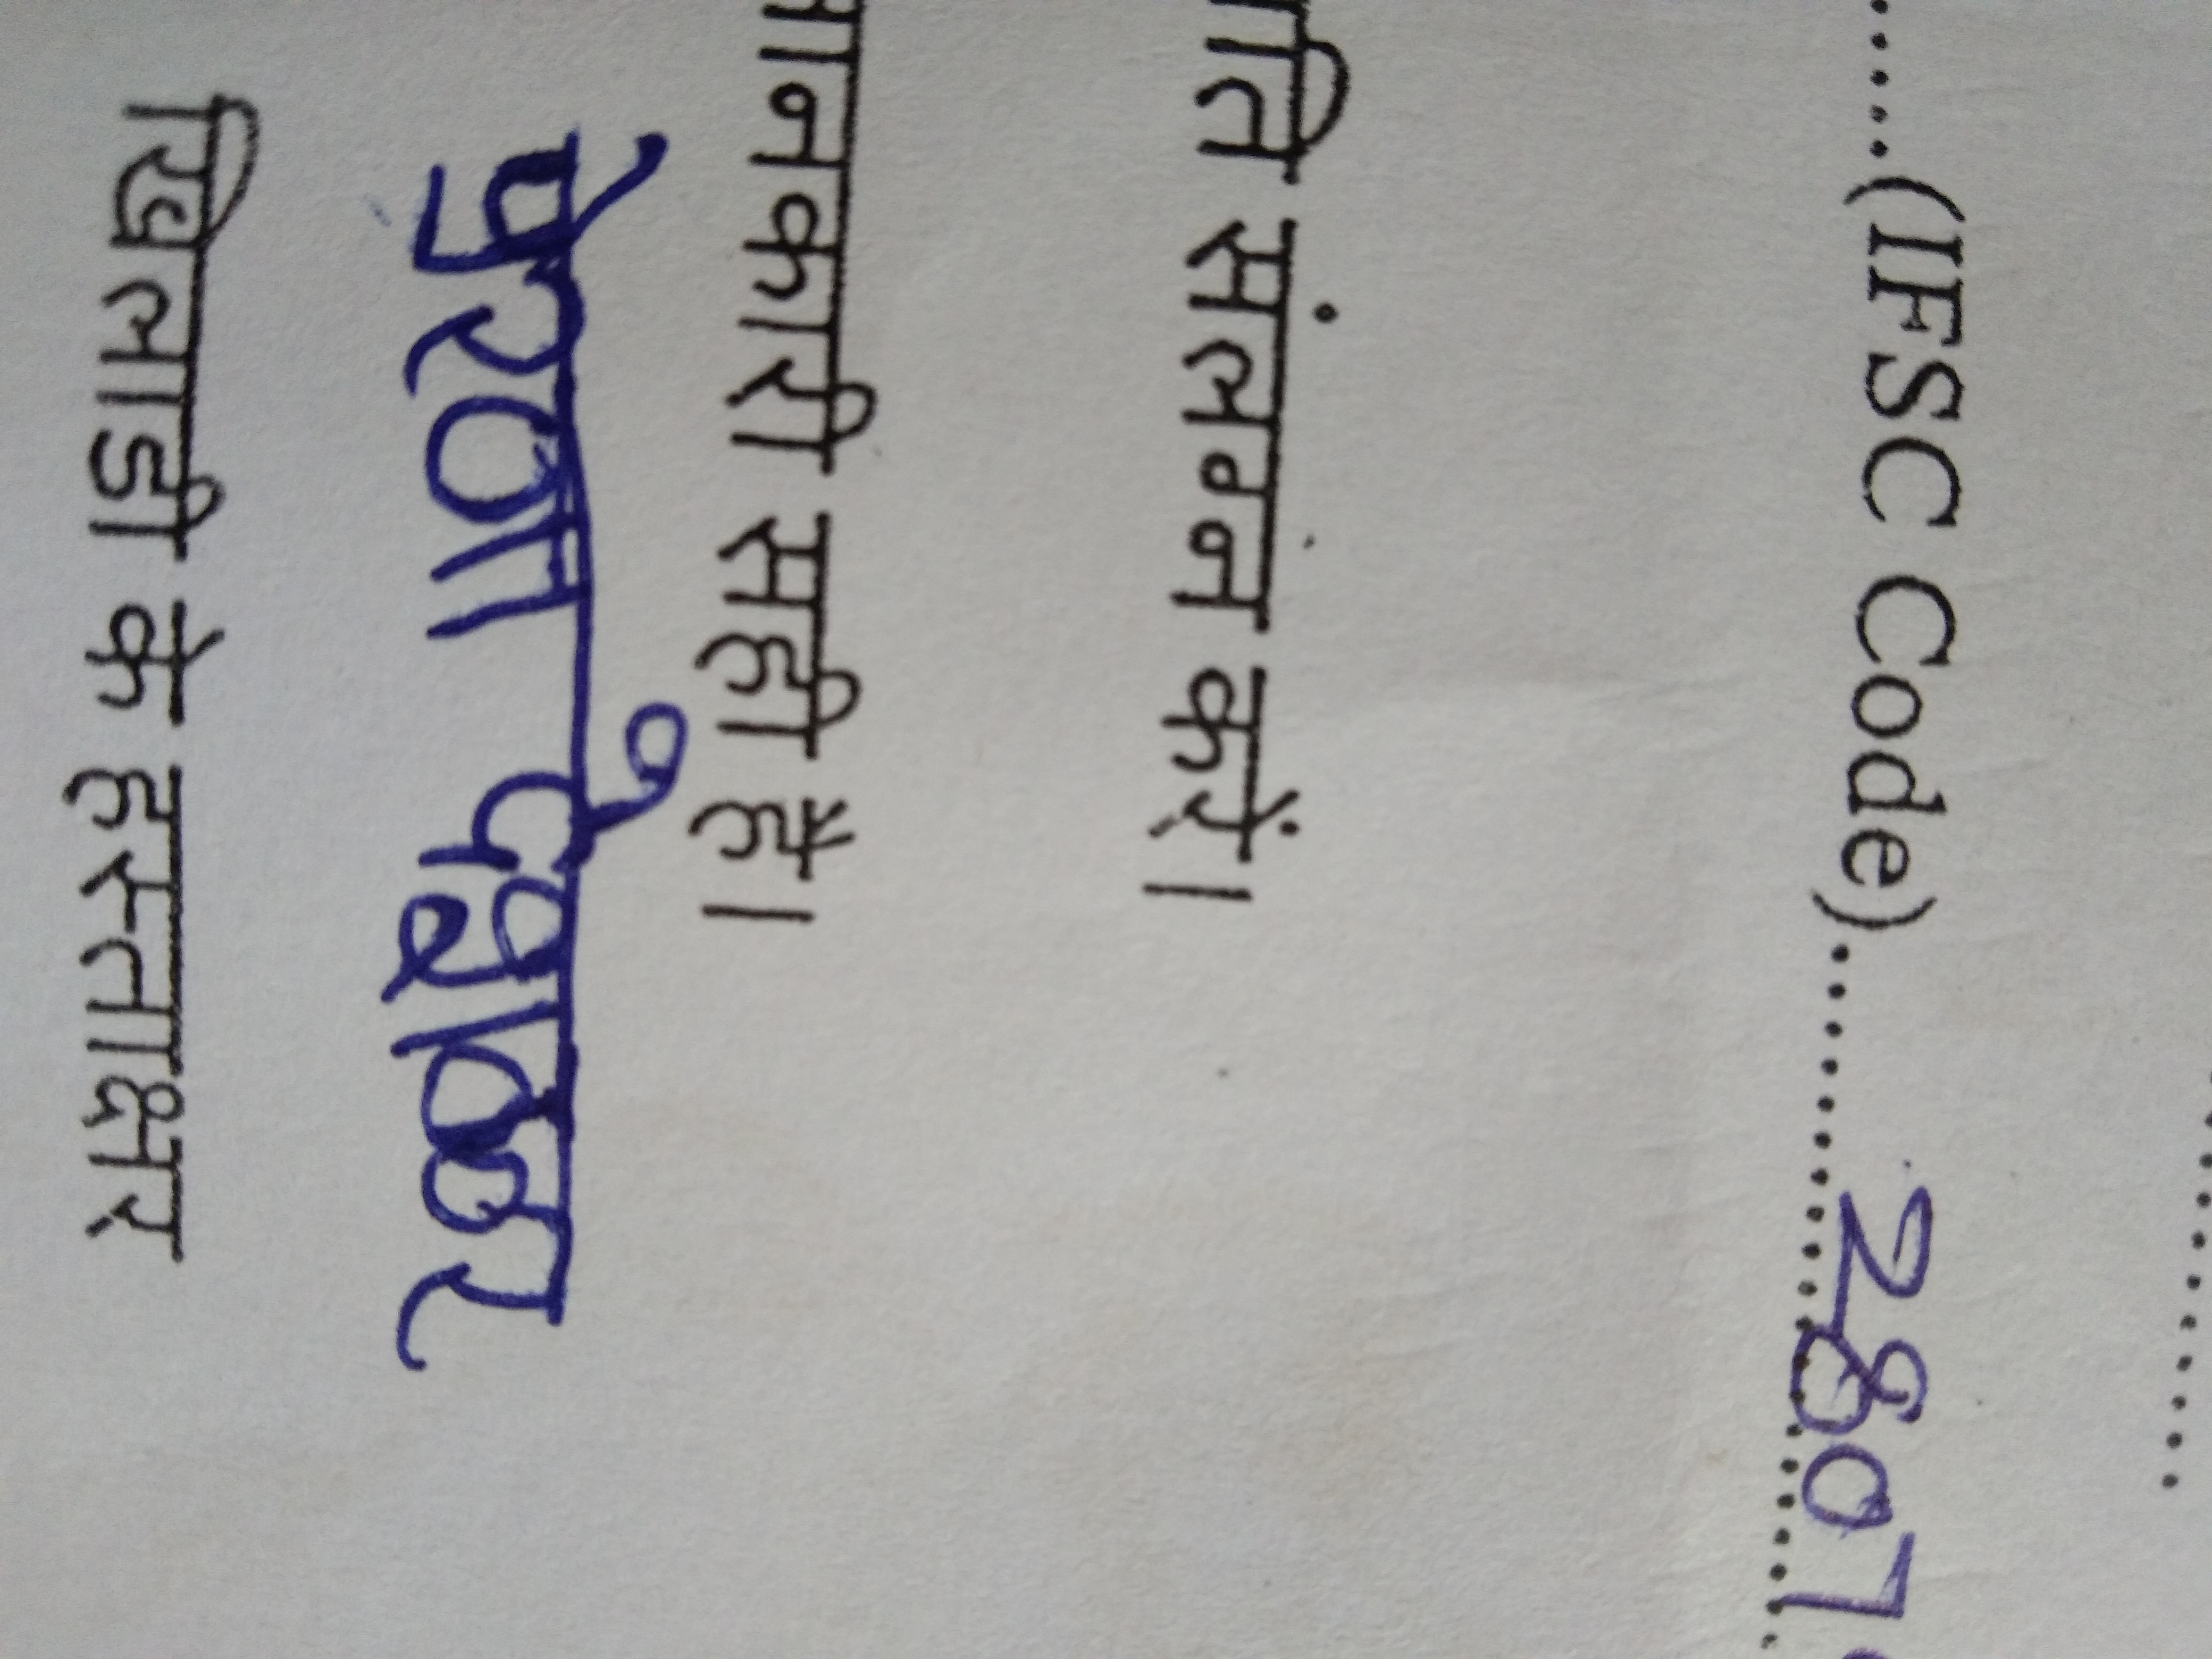 ......(IFSC Code)..........2807
संलग्न करें।
जानकारी सही है।
पेरणा
खिलाडी के हस्ताक्षर